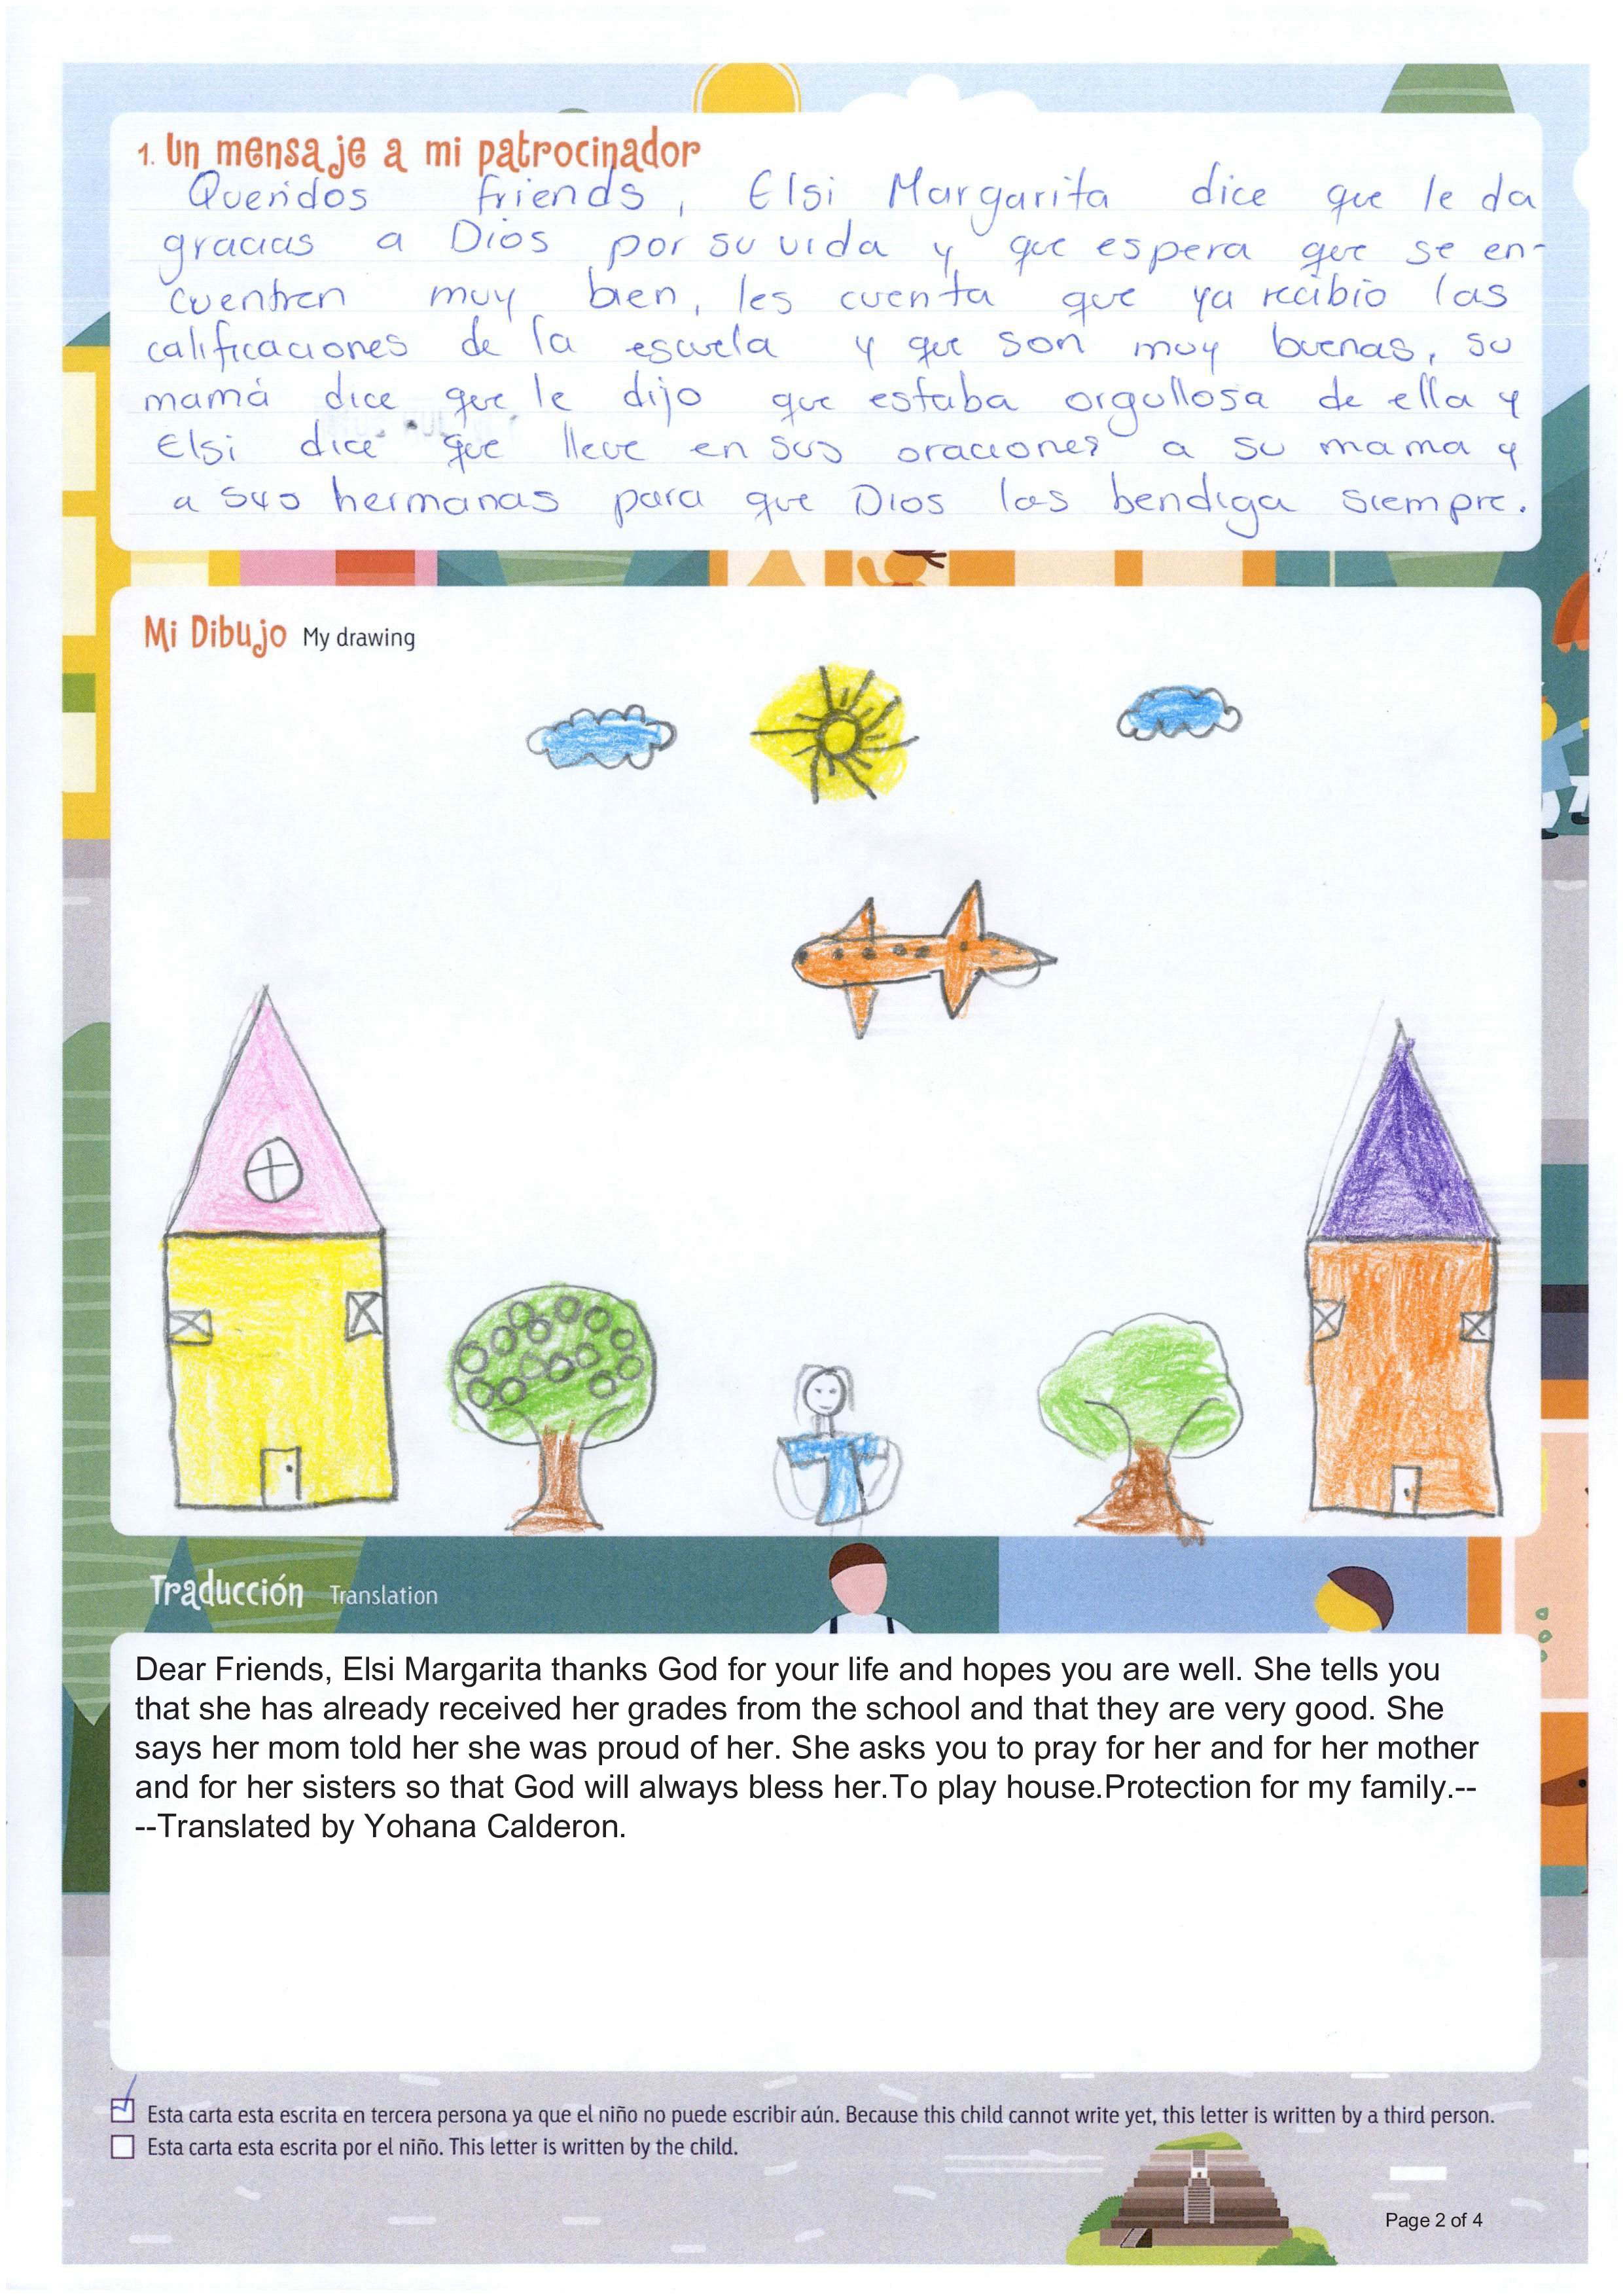 1. Un mensaje a mi patrocinador
Queridos friends, Elsi Margarita dice que le da
gracias a Dios por su vida y que espera que se en-
cuentren muy bien, les cuenta que ya recibio las
calificaciones de la escuela y que son muy buenas, su
mamá dice que le dijo que estaba orgullosa de ella y
Elsi dice que lleve en sus oraciones a su mama y
a sus hermanas para que Dios las bendiga siempre.
Mi Dibujo My drawing
Traducción Translation
Dear Friends, Elsi Margarita thanks God for your life and hopes you are well. She tells you
that she has already received her grades from the school and that they are very good. She
says her mom told her she was proud of her. She asks you to pray for her and for her mother
and for her sisters so that God will always bless her.To play house.Protection for my family.--
--Translated by Yohana Calderon.
Esta carta esta escrita en tercera persona ya que el niño no puede escribir aún. Because this child cannot write yet, this letter is written by a third person.
Esta carta esta escrita por el niño. This letter is written by the child.
Page 2 of 4